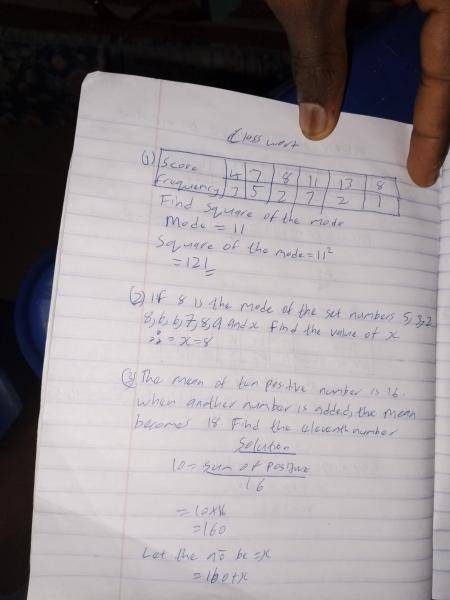 Class work
(1) Score 4 7 8 11 13 8
Frequency 3 5 2 7 2 1
Find square of the mode
Mode = 11
Square of the mode = 11²
= 121
(2) If 8 is the mode of the set numbers 5, 3, 2
8, 6, 6, 7, 8, 9 and x find the value of x
∴ = x = 8
(3) The mean of ten positive number is 16.
when another number is added, the mean
becomes 18. Find the eleventh number
Solution
10 = Sum of positive
16
= 10x16
= 160
Let the no be = x
= 160+x